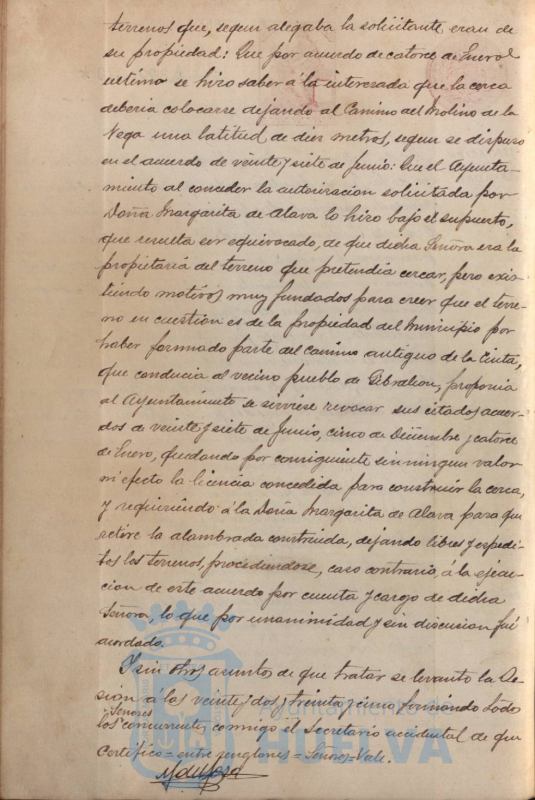 terrenos que, segun alegaba la solicitante eran de
su propiedad: Que por acuerdo de catorce de Enero
ultimo se hizo saber á la interesada que la cerca
deberia colocarse dejando al Camino del Molino de la
Vega una latitud de diez metros, segun se dispuso
en el acuerdo de veinte y siete de Junio: Que el Ayunta-
miento al conceder la autorizacion solicitada por
Doña Margarita de Alava lo hizo bajo el supuesto,
que resulta ser equivocado, de que dicha Señora era la
propietaria del terreno que pretendia cercar, pero exis-
tiendo motivos muy fundados para creer que el terre-
no en cuestion es de la propiedad del Municipio por
haber formado parte del camino antiguo de la Cinta,
que conducia al vecino pueblo de Gibraleon, proponia
al Ayuntamiento se sirviese revocar sus citados acuer-
dos de veinte y siete de Junio, cinco de Diciembre y catorce
de Enero, quedando por consiguiente sin ningun valor
ni efecto la licencia concedida para construir la cerca,
y requiriendo á la Doña Margarita de Alava para que
retire la alambrada construida, dejando libres y espedi-
tos los terrenos, procediendose, caso contrario, á la ejecu-
cion de este acuerdo por cuenta y cargo de dicha
Señora, lo que por unanimidad y sin discusion fué
acordado.
Y sin otros asuntos de que tratar se levantó la Se-
sion á las veinte y dos y treinta y cinco firmando todos
Señores
los concurrentes conmigo el Secretario accidental de que
Certifico = entre renglones = Señores = Vale.
Ayuntamiento de
HUELVA